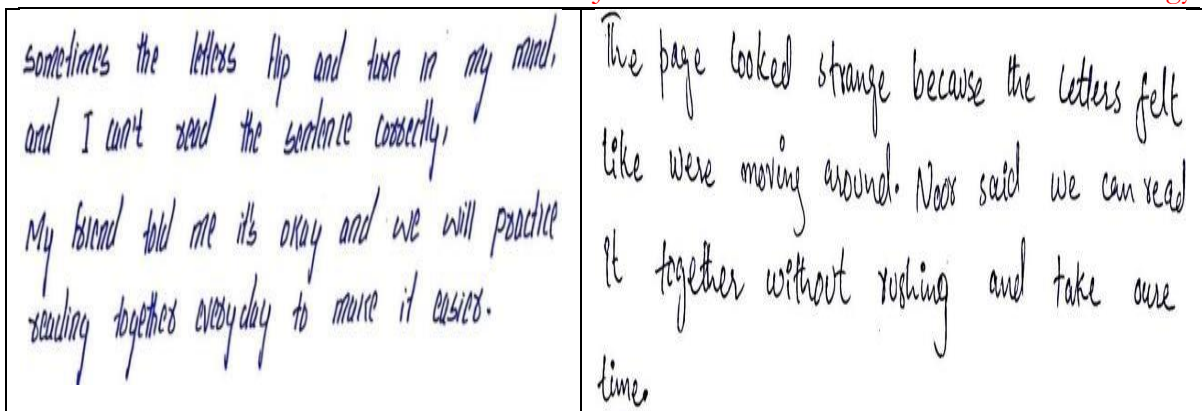 sometimes the letters flip and turn in my mind,
and I can't read the sentence correctly,
My friend told me it's okay and we will practice
reading together everyday to make it easier.
The page looked strange because the letters felt
like were moving around. Noor said we can read
it together without rushing and take oure
time.